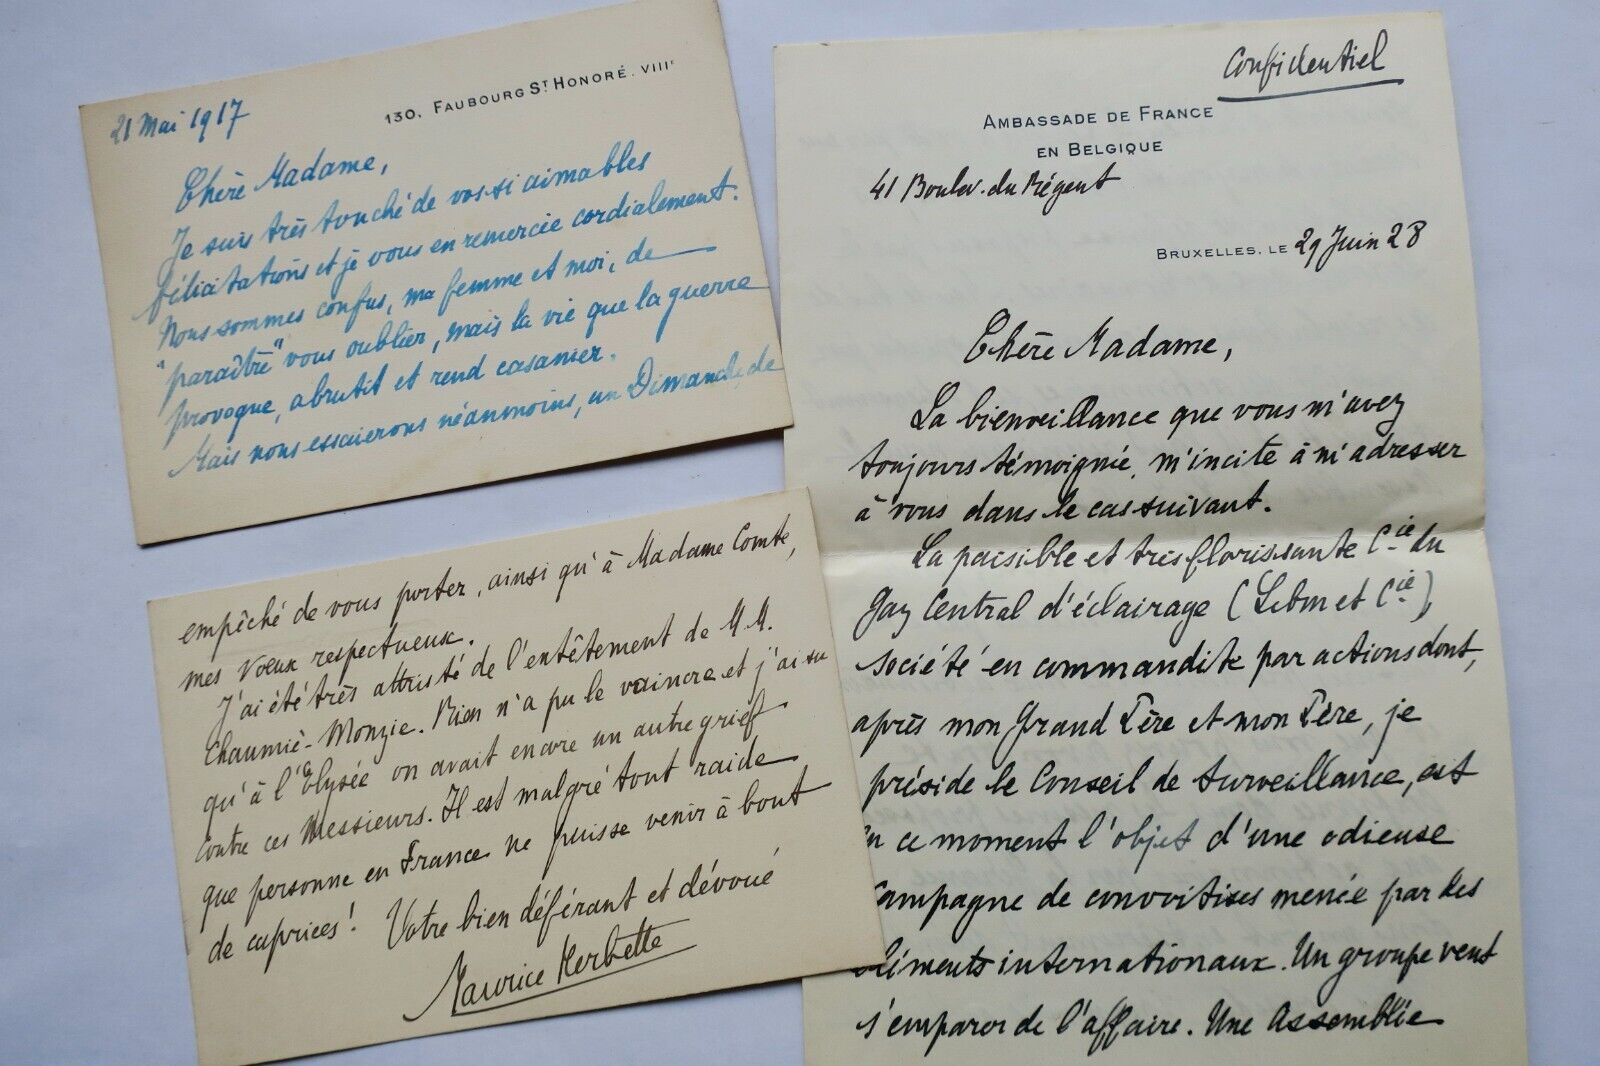 130, FAUBOURG ST HONORÉ. VIIIe
21 Mai 1917
Chère Madame,
Je suis très touché de vos si aimables
félicitations et je vous en remercie cordialement.
Nous sommes confus, ma femme et moi, de
"paraître" vous oublier, mais la vie que la guerre
provoque, abrutit et rend casanier.
Mais nous essaierons néanmoins, un Dimanche, de
empêché de vous porter, ainsi qu'à Madame Comte,
mes vœux respectueux.
J'ai été très attristé de l'entêtement de M.M.
Chaumié-Monzie. Rien n'a pu le vaincre et j'ai su
qu'à l'Elysée on avait encore un autre grief
contre ces Messieurs. Il est malgré tout raide
que personne en France ne puisse venir à bout
de caprices! Votre bien déférant et dévoué
Maurice Herbette
Confidentiel
AMBASSADE DE FRANCE
EN BELGIQUE
41 Boulev. du Régent
BRUXELLES, LE 29 Juin 28
Chère Madame,
La bienveillance que vous m'avez
toujours témoignée, m'incite à m'adresser
à vous dans le cas suivant.
La paisible et très florissante Cie du
Gaz Central d'éclairage (Lebon et Cie),
société en commandite par actions dont,
après mon Grand Père et mon Père, je
préside le Conseil de Surveillance, est
en ce moment l'objet d'une odieuse
campagne de convoitises menée par des
éléments internationaux. Un groupe veut
s'emparer de l'affaire. Une Assemblée